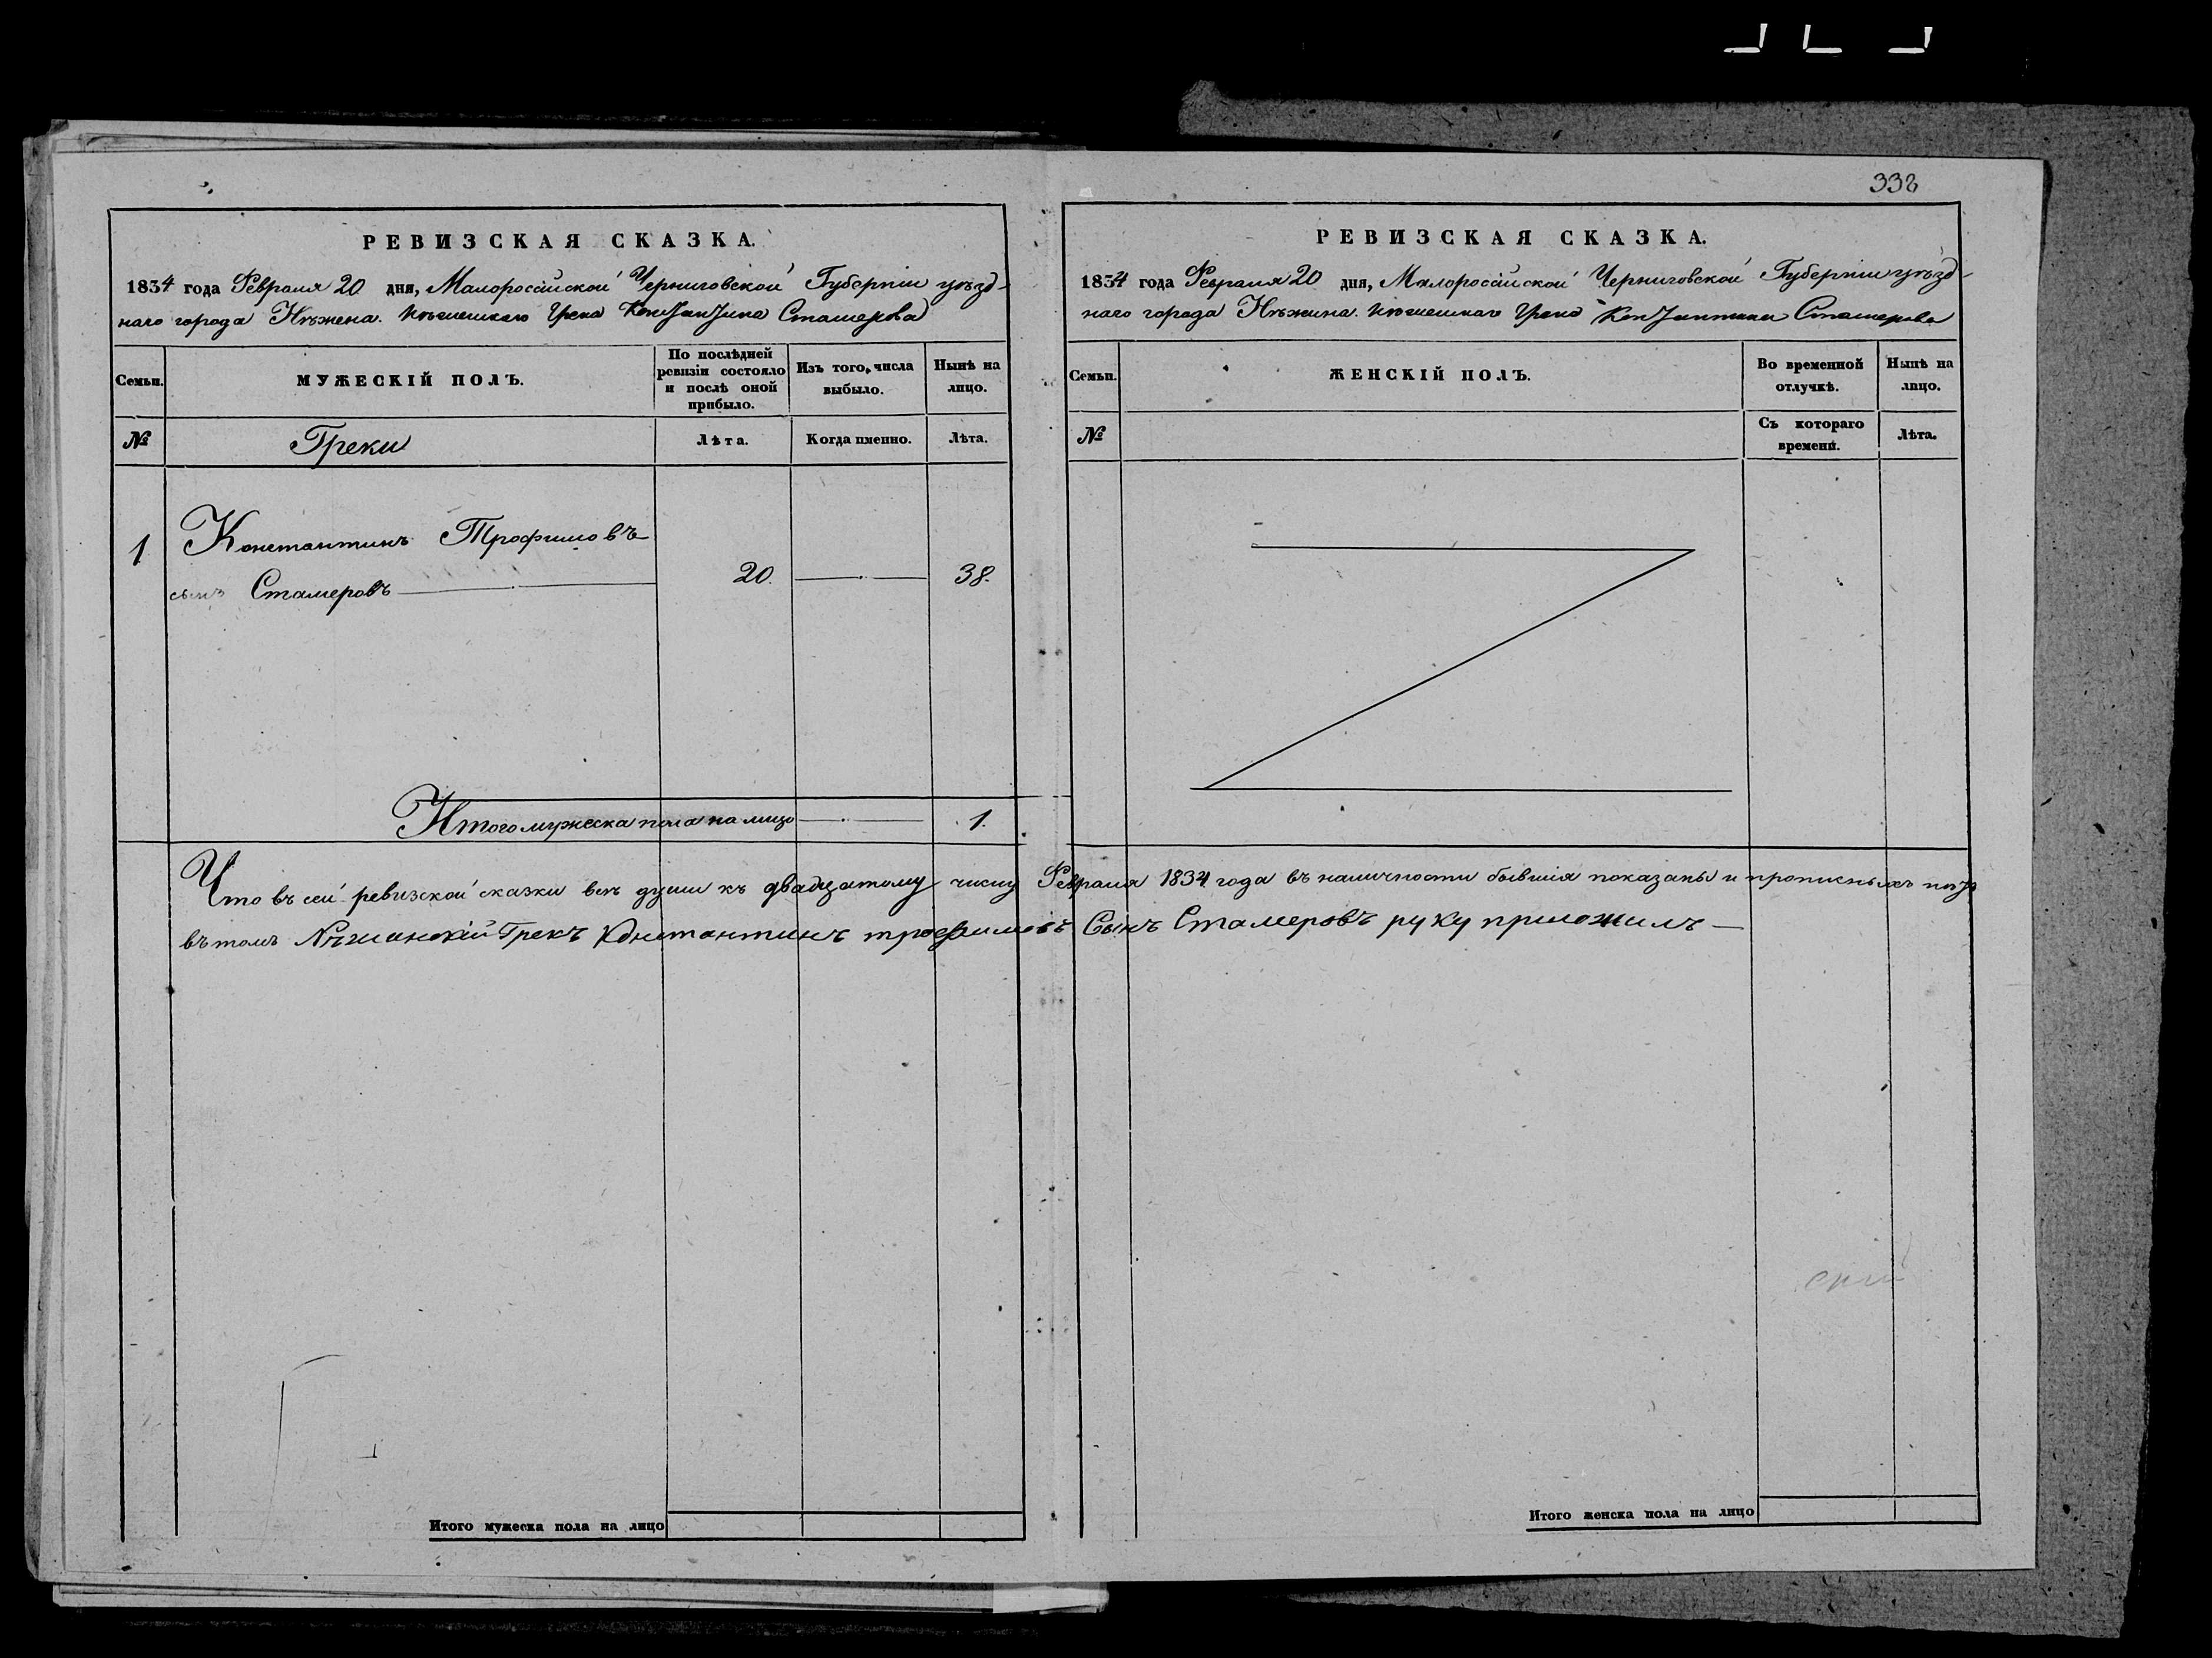 338
РЕВИЗСКАЯ СКАЗКА.
1834 года Февраля 20 дня, Малоросійской Черниговской Губерніи уѣзд-
наго города Нѣжена. Грека Константина Стамерова
Семьи.
МУЖЕСКІЙ ПОЛЪ.
По послѣдней ревизіи состояло и послѣ оной прибыло.
Изъ того числа выбыло.
Нынѣ на лицо.
№
Греки
Лѣта.
Когда именно.
Лѣта.
1
Константинъ Трофимовъ
сынъ Стамеровъ
20.
38.
Итого мужеска пола на лицо
1.
РЕВИЗСКАЯ СКАЗКА.
1834 года Февраля 20 дня, Малоросійской Черниговской Губерніи уѣзд-
наго города Нѣжина. Грека Константина Стамерова
Семьи.
ЖЕНСКІЙ ПОЛЪ.
Во временной отлучкѣ.
Нынѣ на лицо.
№
Съ котораго времени.
Лѣта.
Что въ сей ревизской сказки всѣ души къ двадцатому числу Февраля 1834 года въ наличности бывшія показаны и прописныхъ
въ томъ Грекъ Константинъ трофимовъ Сынъ Стамеровъ руку приложилъ
Итого мужеска пола на лицо
Итого женска пола на лицо